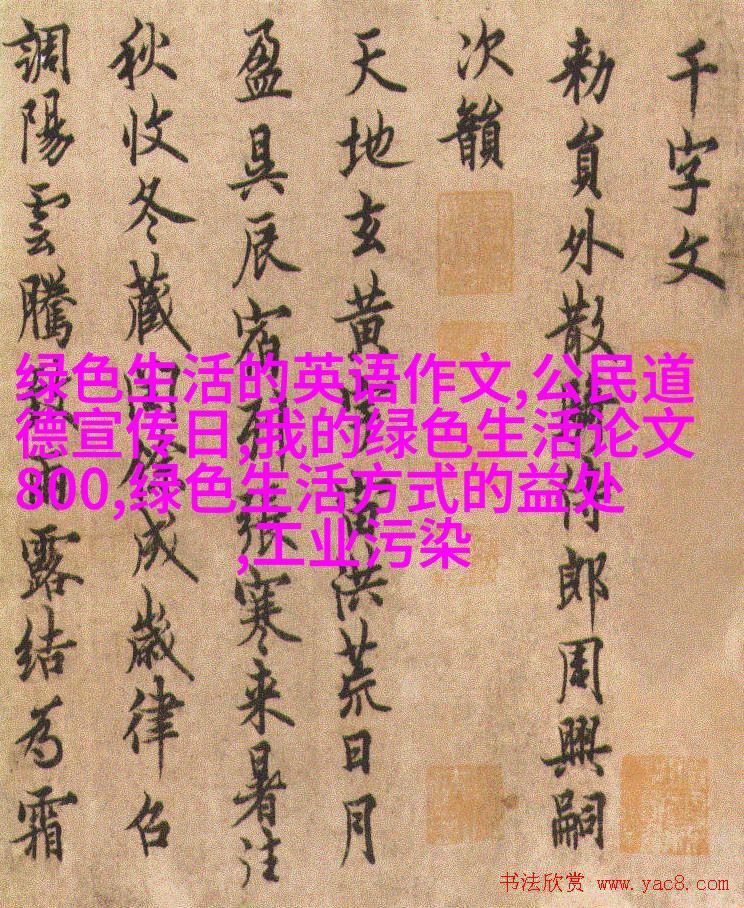 千字文
勅員外散侍郎周興嗣
次韻
天地玄黄宙洪荒日月
盈昃辰宿列張寒来暑往
秋收冬藏閏成歲律召
調陽雲騰雨露結為霜
绿色生活的英语作文,公民道
德宣传日,我的绿色生活论文
800,绿色生活方式的益处
,工业污染
书法欣赏 www.yac8.com